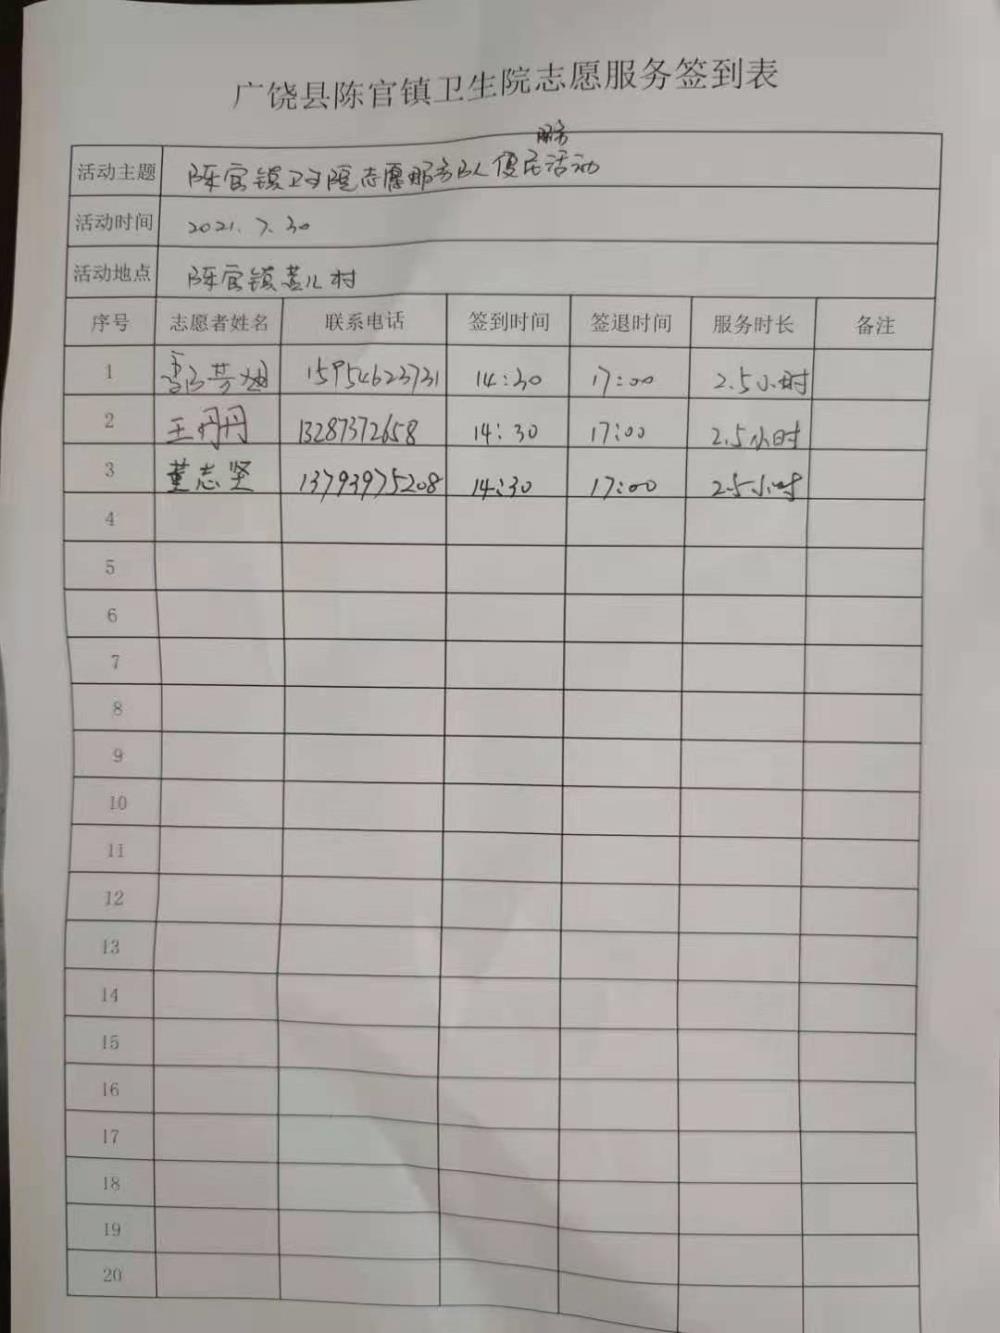 广饶县陈官镇卫生院志愿服务签到表
服务
活动主题 陈官镇卫生院志愿服务队便民活动
活动时间 2021.7.30
活动地点 陈官镇 村
序号 志愿者姓名 联系电话 签到时间 签退时间 服务时长 备注
1 15954623731 14:30 17:00 2.5小时
2 王丹丹 13287372658 14:30 17:00 2.5小时
3 董志坚 13793975208 14:30 17:00 2.5小时
4
5
6
7
8
9
10
11
12
13
14
15
16
17
18
19
20